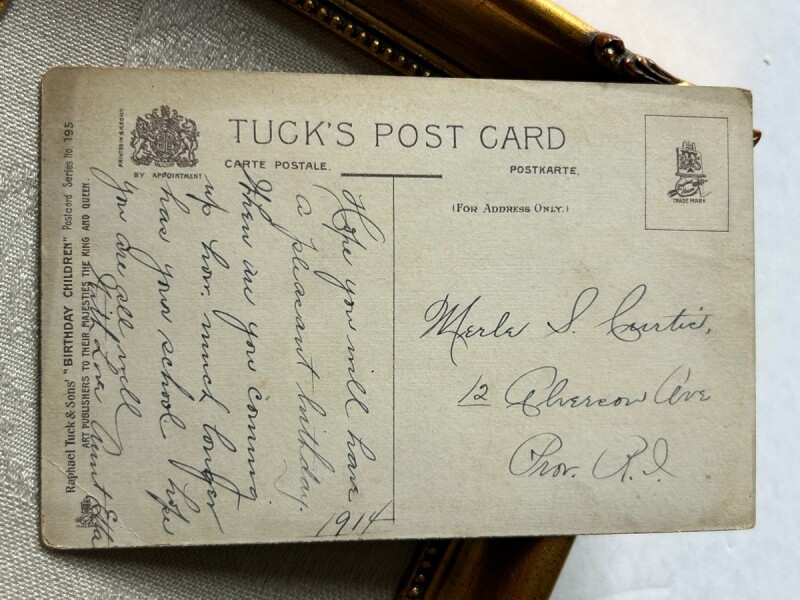 TUCK'S POST CARD
CARTE POSTALE.
POSTKARTE.
(FOR ADDRESS ONLY.)
PRINTED IN SAXONY
BY APPOINTMENT
TRADE MARK
Raphael Tuck & Sons' "BIRTHDAY CHILDREN" Postcard Series No. 195
ART PUBLISHERS TO THEIR MAJESTIES THE KING AND QUEEN.
Hope you will have
a pleasant birthday.
When are you coming
up how much longer
has your school hope
you are all well
with love Aunt Etta
1914
Merle S. Curtis,
12 Alverson Ave
Prov. R.I.